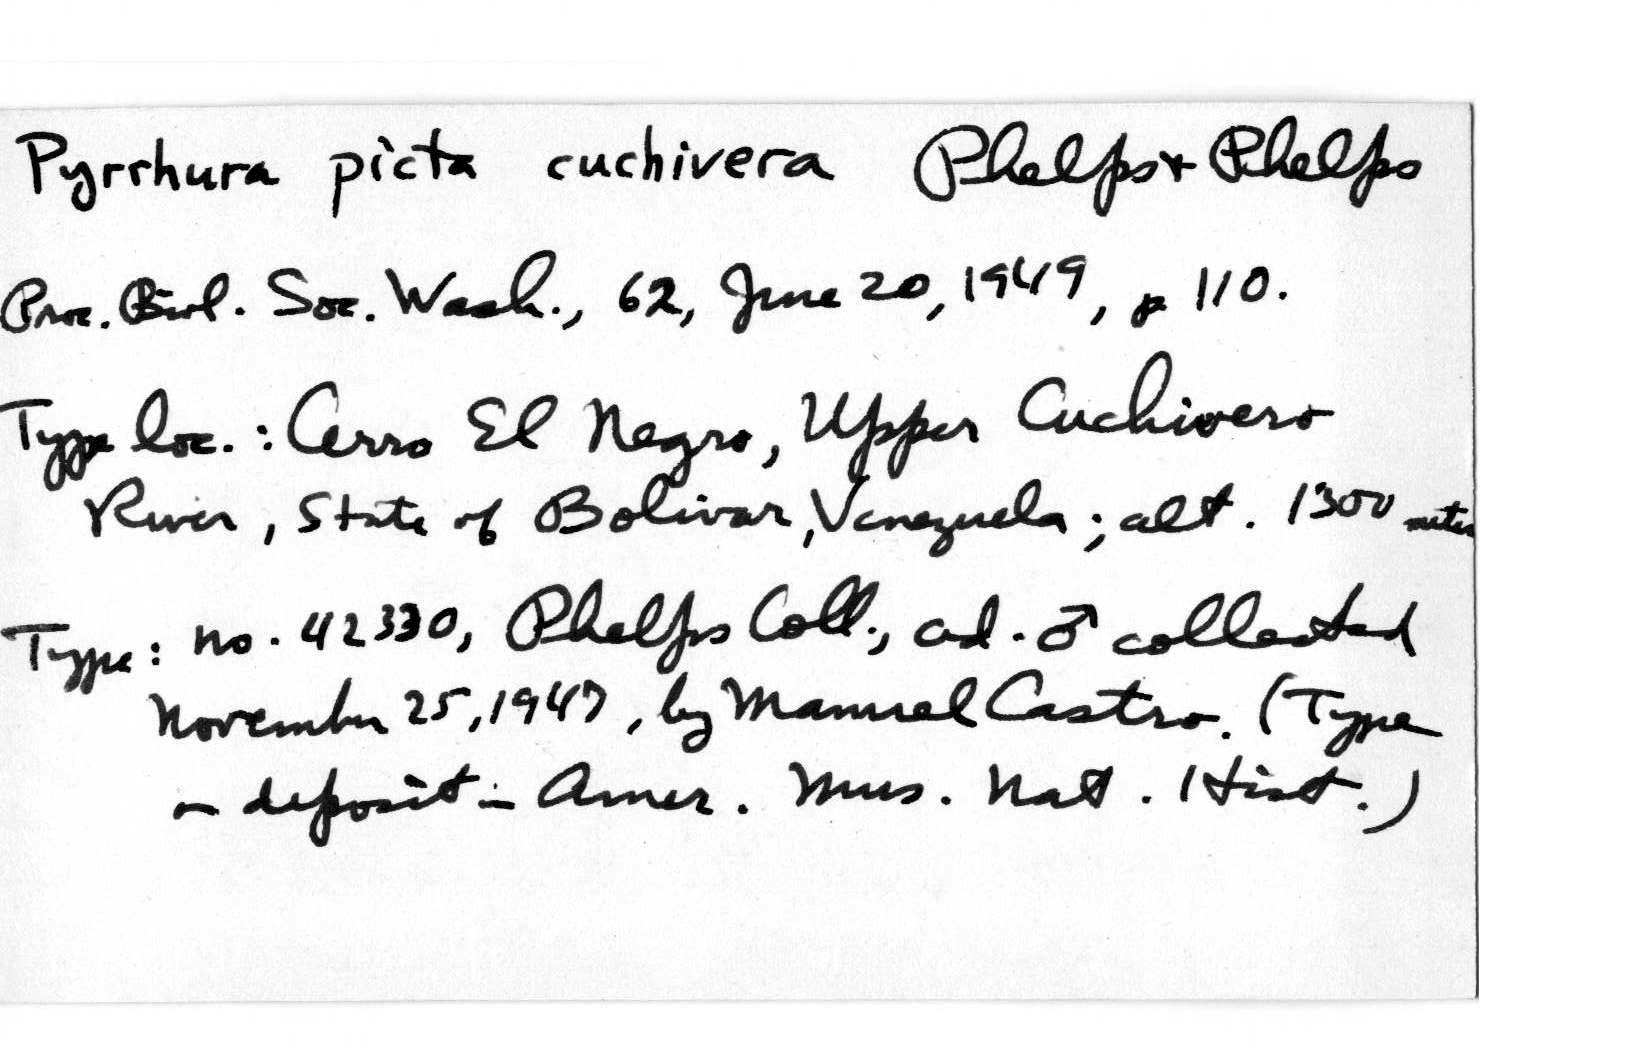 Pyrrhura picta cuchivera Phelps + Phelps
Proc. Biol. Soc. Wash., 62, June 20, 1949, p 110.
Type loc.: Cerro El Negro, Upper Cuchivero
River, State of Bolivar, Venezuela; alt. 1300 meters
Type: no. 42330, Phelps Coll., ad. ♂ collected
November 25, 1947, by Manuel Castro. (Type
on deposit in Amer. Mus. Nat. Hist.)